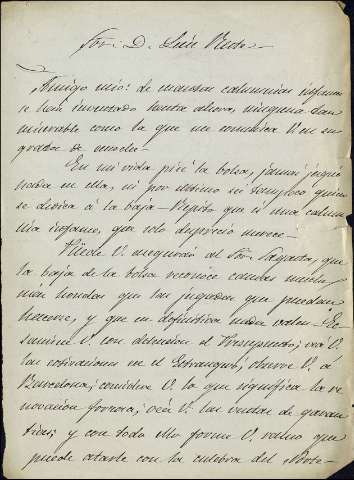 Sor. D. Luis
Amigo mio: de cuantas calumnias infames
se han inventado hasta ahora, ninguna tan
miserable como la que me comunica V. en su
grata de anoche.
En mi vida pisé la bolsa, jamás jugué
nada en ella, ni por mi ni tampoco quien
se dedica á la baja. Repito que es una calum
nia infame, que solo desprecio merece.
Puede V. asegurar al Sor. que
la baja de la bolsa reconoce causas mucho
más hondas que las jugadas que puedan
hacerse, y que en definitiva nada valen. Ex
amine V. con detencion el Presupuesto; vea V.
las cotizaciones en el Extrangero, observe V. á
Barcelona; considere V. lo que significa la re
novacion forzosa; vea V. las ventas de garan
tias; y con todo ello forme V. ramo que
puede atarle con la culebra del Norte.